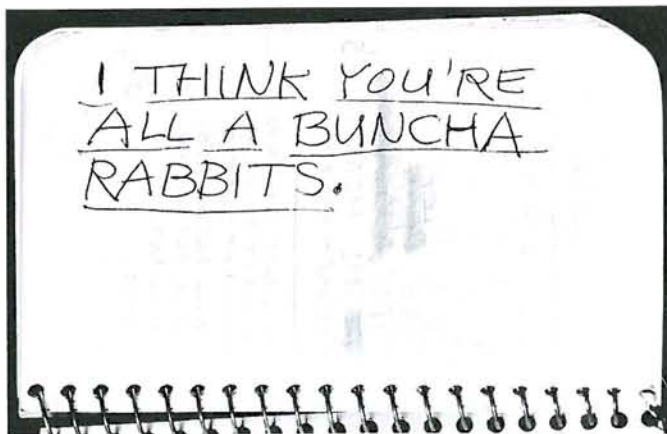 I THINK YOU'RE
ALL A BUNCHA
RABBITS.